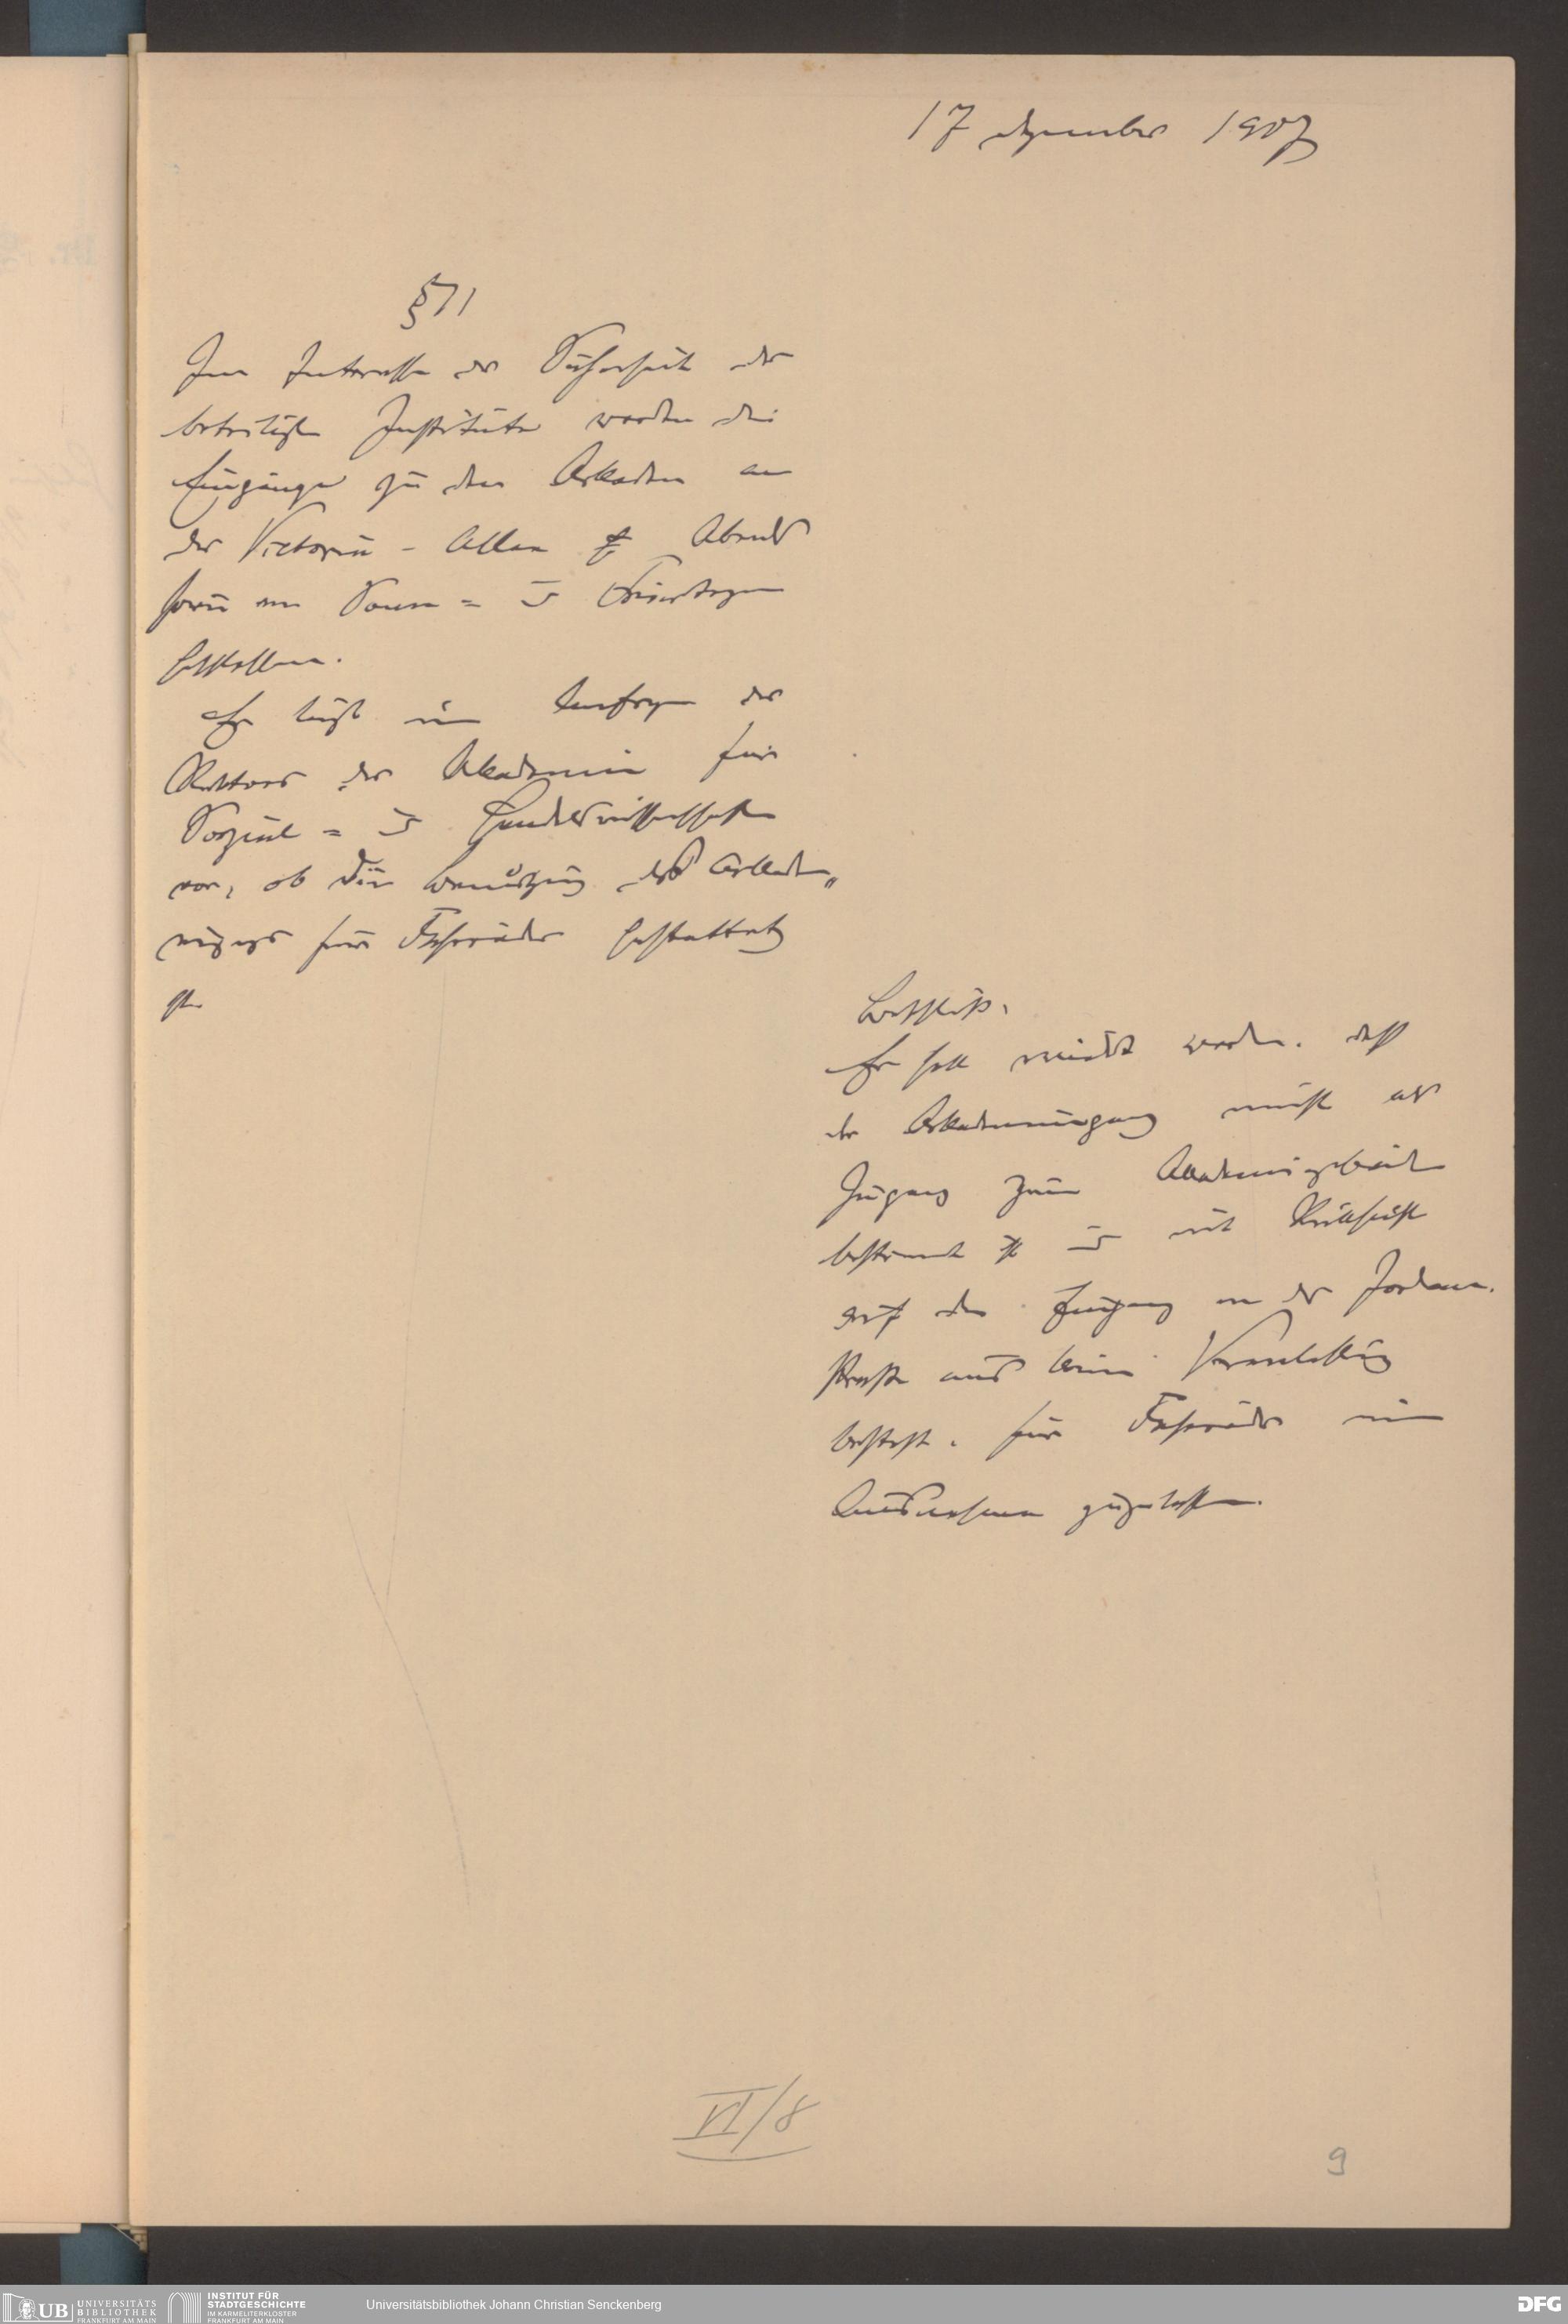 17 Dezember 1907
§ 71
Im Interesse der Sicherheit der
beteiligten Institute werden die
Eingänge zu den Arkaden an
der Victoria - Allee Abends
sowie an Sonn = u Feiertagen
geschlossen.
Es liegt eine Anfrage des
Rektors der Akademie für
Sozial = u Handelswissenschaften
vor, ob die Benützung des Arkaden„
eingangs für Fahrräder gestattet
ist.
Beschluß.
Es soll erwidert werden. daß
der Arkadeneingang nicht als
Zugang zum Akademiegebäude
bestimmt ist u mit Rücksicht
auf den Eingang an der Jordan.
straße auch keine Veranlassung
besteht. für Fahrräder eine
Ausnahme zuzulassen.
VI/8
9
UB UNIVERSITÄTS BIBLIOTHEK FRANKFURT AM MAIN
INSTITUT FÜR STADTGESCHICHTE IM KARMELITERKLOSTER FRANKFURT AM MAIN
Universitätsbibliothek Johann Christian Senckenberg
DFG